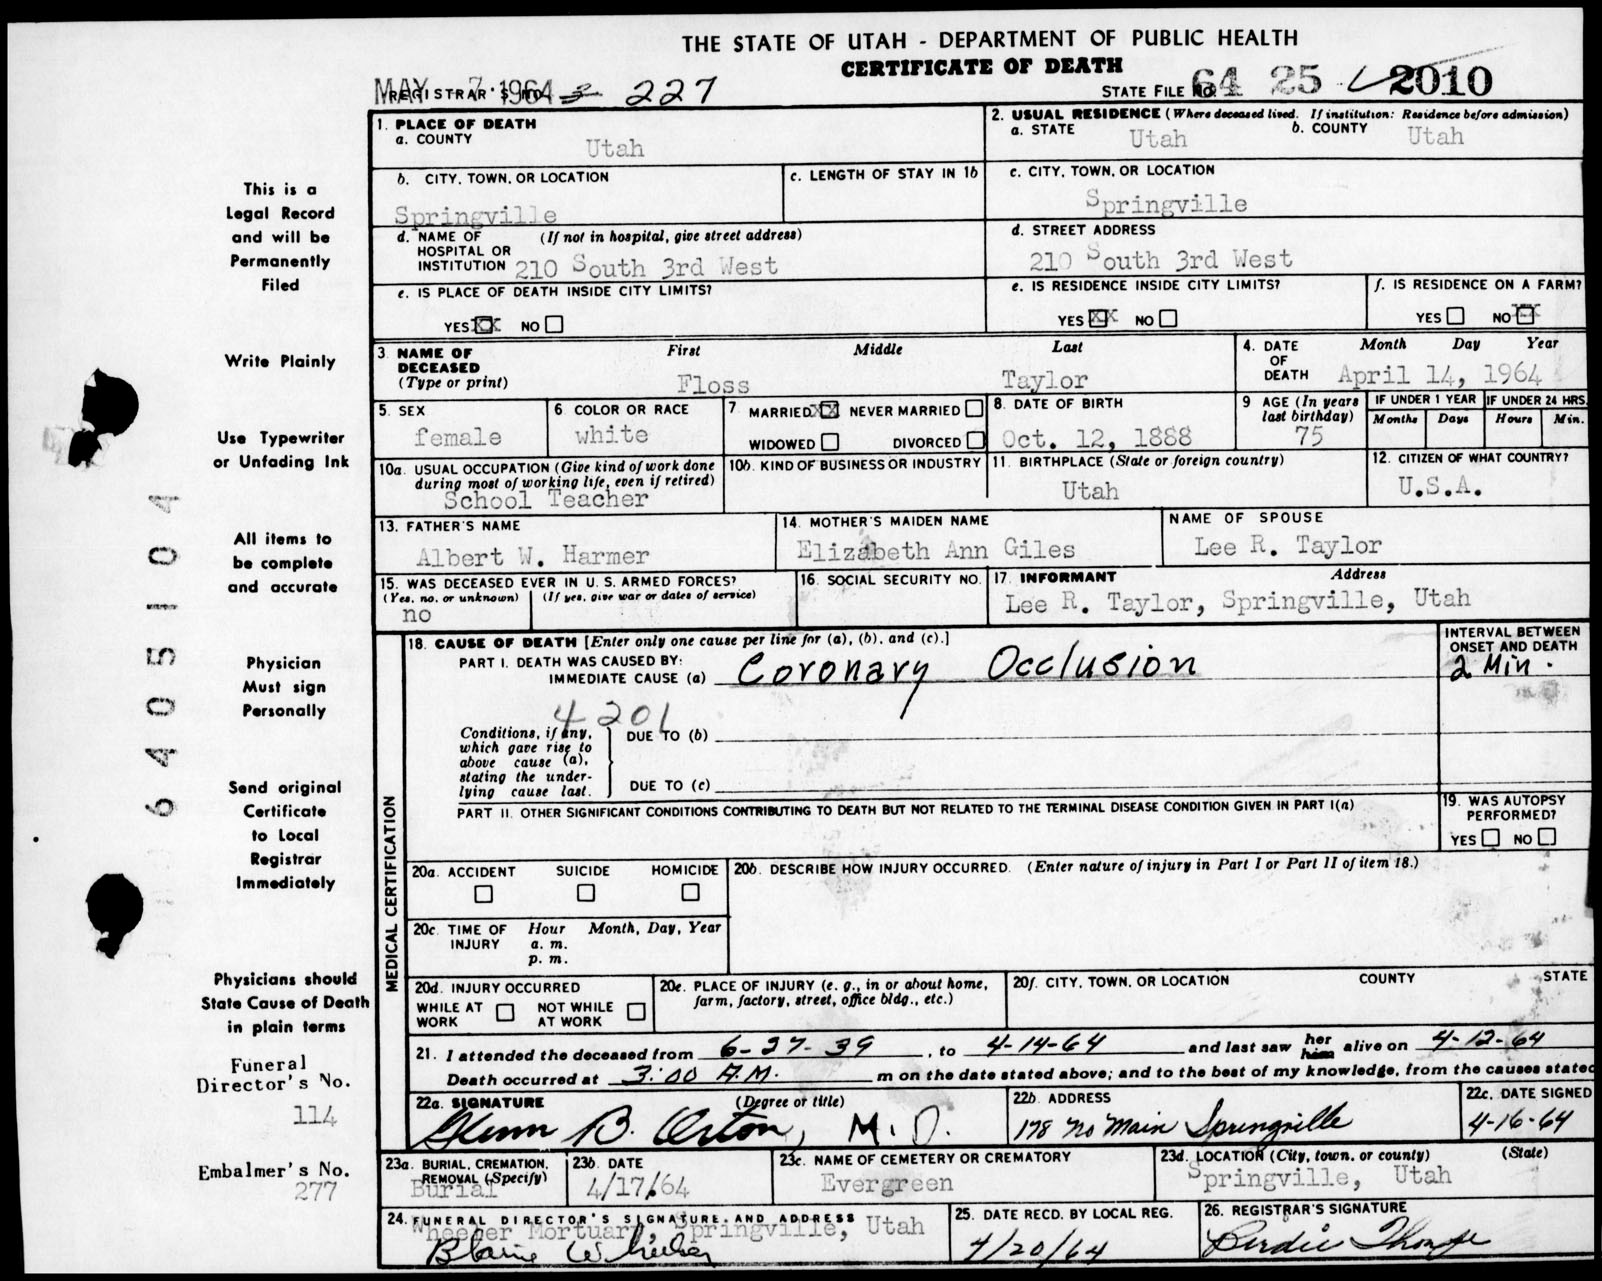 THE STATE OF UTAH - DEPARTMENT OF PUBLIC HEALTH
CERTIFICATE OF DEATH
MAY 7 1964 REGISTRAR'S NO. 3 227
STATE FILE NO. 64 25 2010
1. PLACE OF DEATH
a. COUNTY Utah
2. USUAL RESIDENCE (Where deceased lived. If institution: Residence before admission)
a. STATE Utah b. COUNTY Utah
b. CITY, TOWN, OR LOCATION Springville
c. LENGTH OF STAY IN 1b
c. CITY, TOWN, OR LOCATION
Springville
d. NAME OF HOSPITAL OR INSTITUTION (If not in hospital, give street address)
210 South 3rd West
d. STREET ADDRESS
210 South 3rd West
e. IS PLACE OF DEATH INSIDE CITY LIMITS?
YES XX NO
e. IS RESIDENCE INSIDE CITY LIMITS?
YES XX NO
f. IS RESIDENCE ON A FARM?
YES NO XX
3. NAME OF DECEASED (Type or print)
First Middle Last
Floss Taylor
4. DATE OF DEATH Month Day Year
April 14, 1964
5. SEX
female
6. COLOR OR RACE
white
7. MARRIED XX NEVER MARRIED
WIDOWED DIVORCED
8. DATE OF BIRTH
Oct. 12, 1888
9. AGE (In years last birthday)
75
IF UNDER 1 YEAR IF UNDER 24 HRS.
Months Days Hours Min.
10a. USUAL OCCUPATION (Give kind of work done during most of working life, even if retired)
School Teacher
10b. KIND OF BUSINESS OR INDUSTRY
11. BIRTHPLACE (State or foreign country)
Utah
12. CITIZEN OF WHAT COUNTRY?
U.S.A.
13. FATHER'S NAME
Albert W. Harmer
14. MOTHER'S MAIDEN NAME
Elizabeth Ann Giles
NAME OF SPOUSE
Lee R. Taylor
15. WAS DECEASED EVER IN U. S. ARMED FORCES?
(Yes, no, or unknown) (If yes, give war or dates of service)
no
16. SOCIAL SECURITY NO.
17. INFORMANT Address
Lee R. Taylor, Springville, Utah
MEDICAL CERTIFICATION
18. CAUSE OF DEATH [Enter only one cause per line for (a), (b), and (c).]
PART I. DEATH WAS CAUSED BY:
IMMEDIATE CAUSE (a) Coronary Occlusion
INTERVAL BETWEEN ONSET AND DEATH
2 Min.
4201
Conditions, if any, which gave rise to above cause (a), stating the underlying cause last.
DUE TO (b)
DUE TO (c)
PART II. OTHER SIGNIFICANT CONDITIONS CONTRIBUTING TO DEATH BUT NOT RELATED TO THE TERMINAL DISEASE CONDITION GIVEN IN PART I(a)
19. WAS AUTOPSY PERFORMED?
YES NO
20a. ACCIDENT SUICIDE HOMICIDE
20b. DESCRIBE HOW INJURY OCCURRED. (Enter nature of injury in Part I or Part II of item 18.)
20c. TIME OF INJURY Hour Month, Day, Year
a. m.
p. m.
20d. INJURY OCCURRED
WHILE AT WORK NOT WHILE AT WORK
20e. PLACE OF INJURY (e. g., in or about home, farm, factory, street, office bldg., etc.)
20f. CITY, TOWN, OR LOCATION COUNTY STATE
21. I attended the deceased from 6-27-39, to 4-14-64 and last saw her him alive on 4-12-64
Death occurred at 3:00 A.M. m on the date stated above; and to the best of my knowledge, from the causes stated
22a. SIGNATURE (Degree or title)
Glenn B. Orton, M.D.
22b. ADDRESS
178 No Main Springville
22c. DATE SIGNED
4-16-64
23a. BURIAL, CREMATION, REMOVAL (Specify)
Burial
23b. DATE
4/17/64
23c. NAME OF CEMETERY OR CREMATORY
Evergreen
23d. LOCATION (City, town, or county) (State)
Springville, Utah
24. FUNERAL DIRECTOR'S SIGNATURE AND ADDRESS
Wheeler Mortuary, Springville, Utah
Blaine W Wheeler
25. DATE RECD. BY LOCAL REG.
4/20/64
26. REGISTRAR'S SIGNATURE
Birdie Thorpe
This is a
Legal Record
and will be
Permanently
Filed
Write Plainly
Use Typewriter
or Unfading Ink
All items to
be complete
and accurate
Physician
Must sign
Personally
Send original
Certificate
to Local
Registrar
Immediately
Physicians should
State Cause of Death
in plain terms
Funeral
Director's No.
114
Embalmer's No.
277
6405104